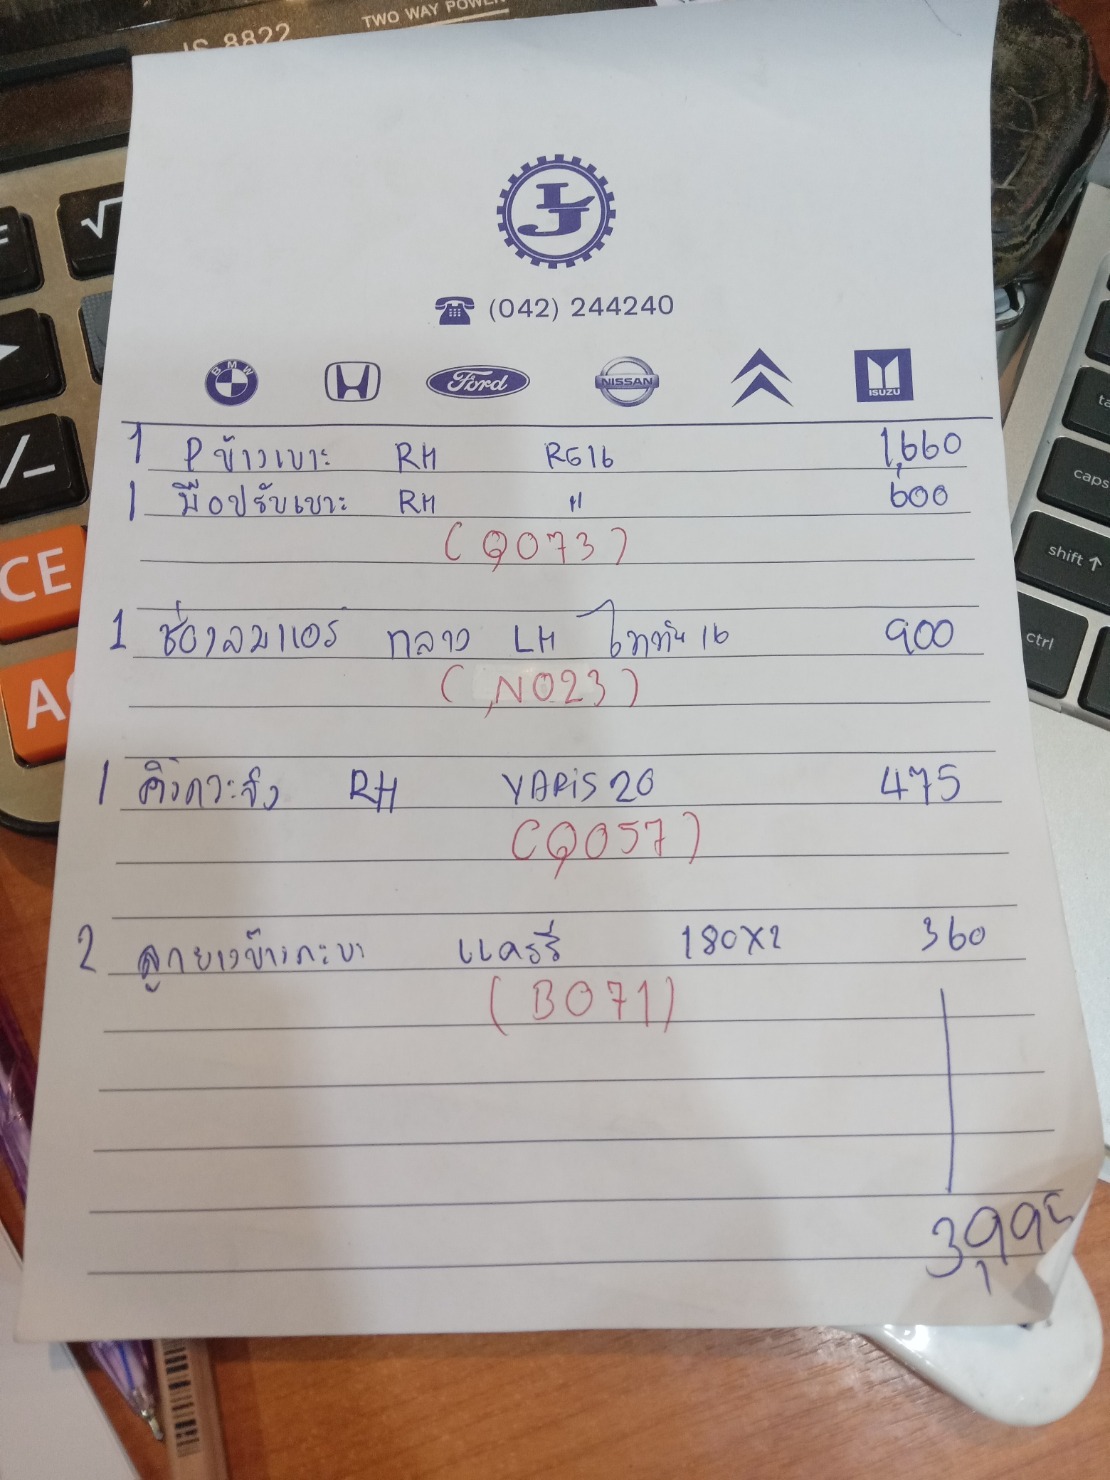 JS-8822
TWO WAY POWER
LJ
(042) 244240
BMW Ford NISSAN ISUZU
1 P ข้างเบาะ RH RG16 1,660
1 มือปรับเบาะ RH " 600
(Q073)
1 ช่องลมแอร์ กลาง LH ไททัน 16 900
(N023)
1 คิ้วกระจัง RH YARiS 20 475
(Q057)
2 ลูกยางข้างกะบะ แครรี่ 180X2 360
(B071)
3,995
CE
caps
shift
ctrl